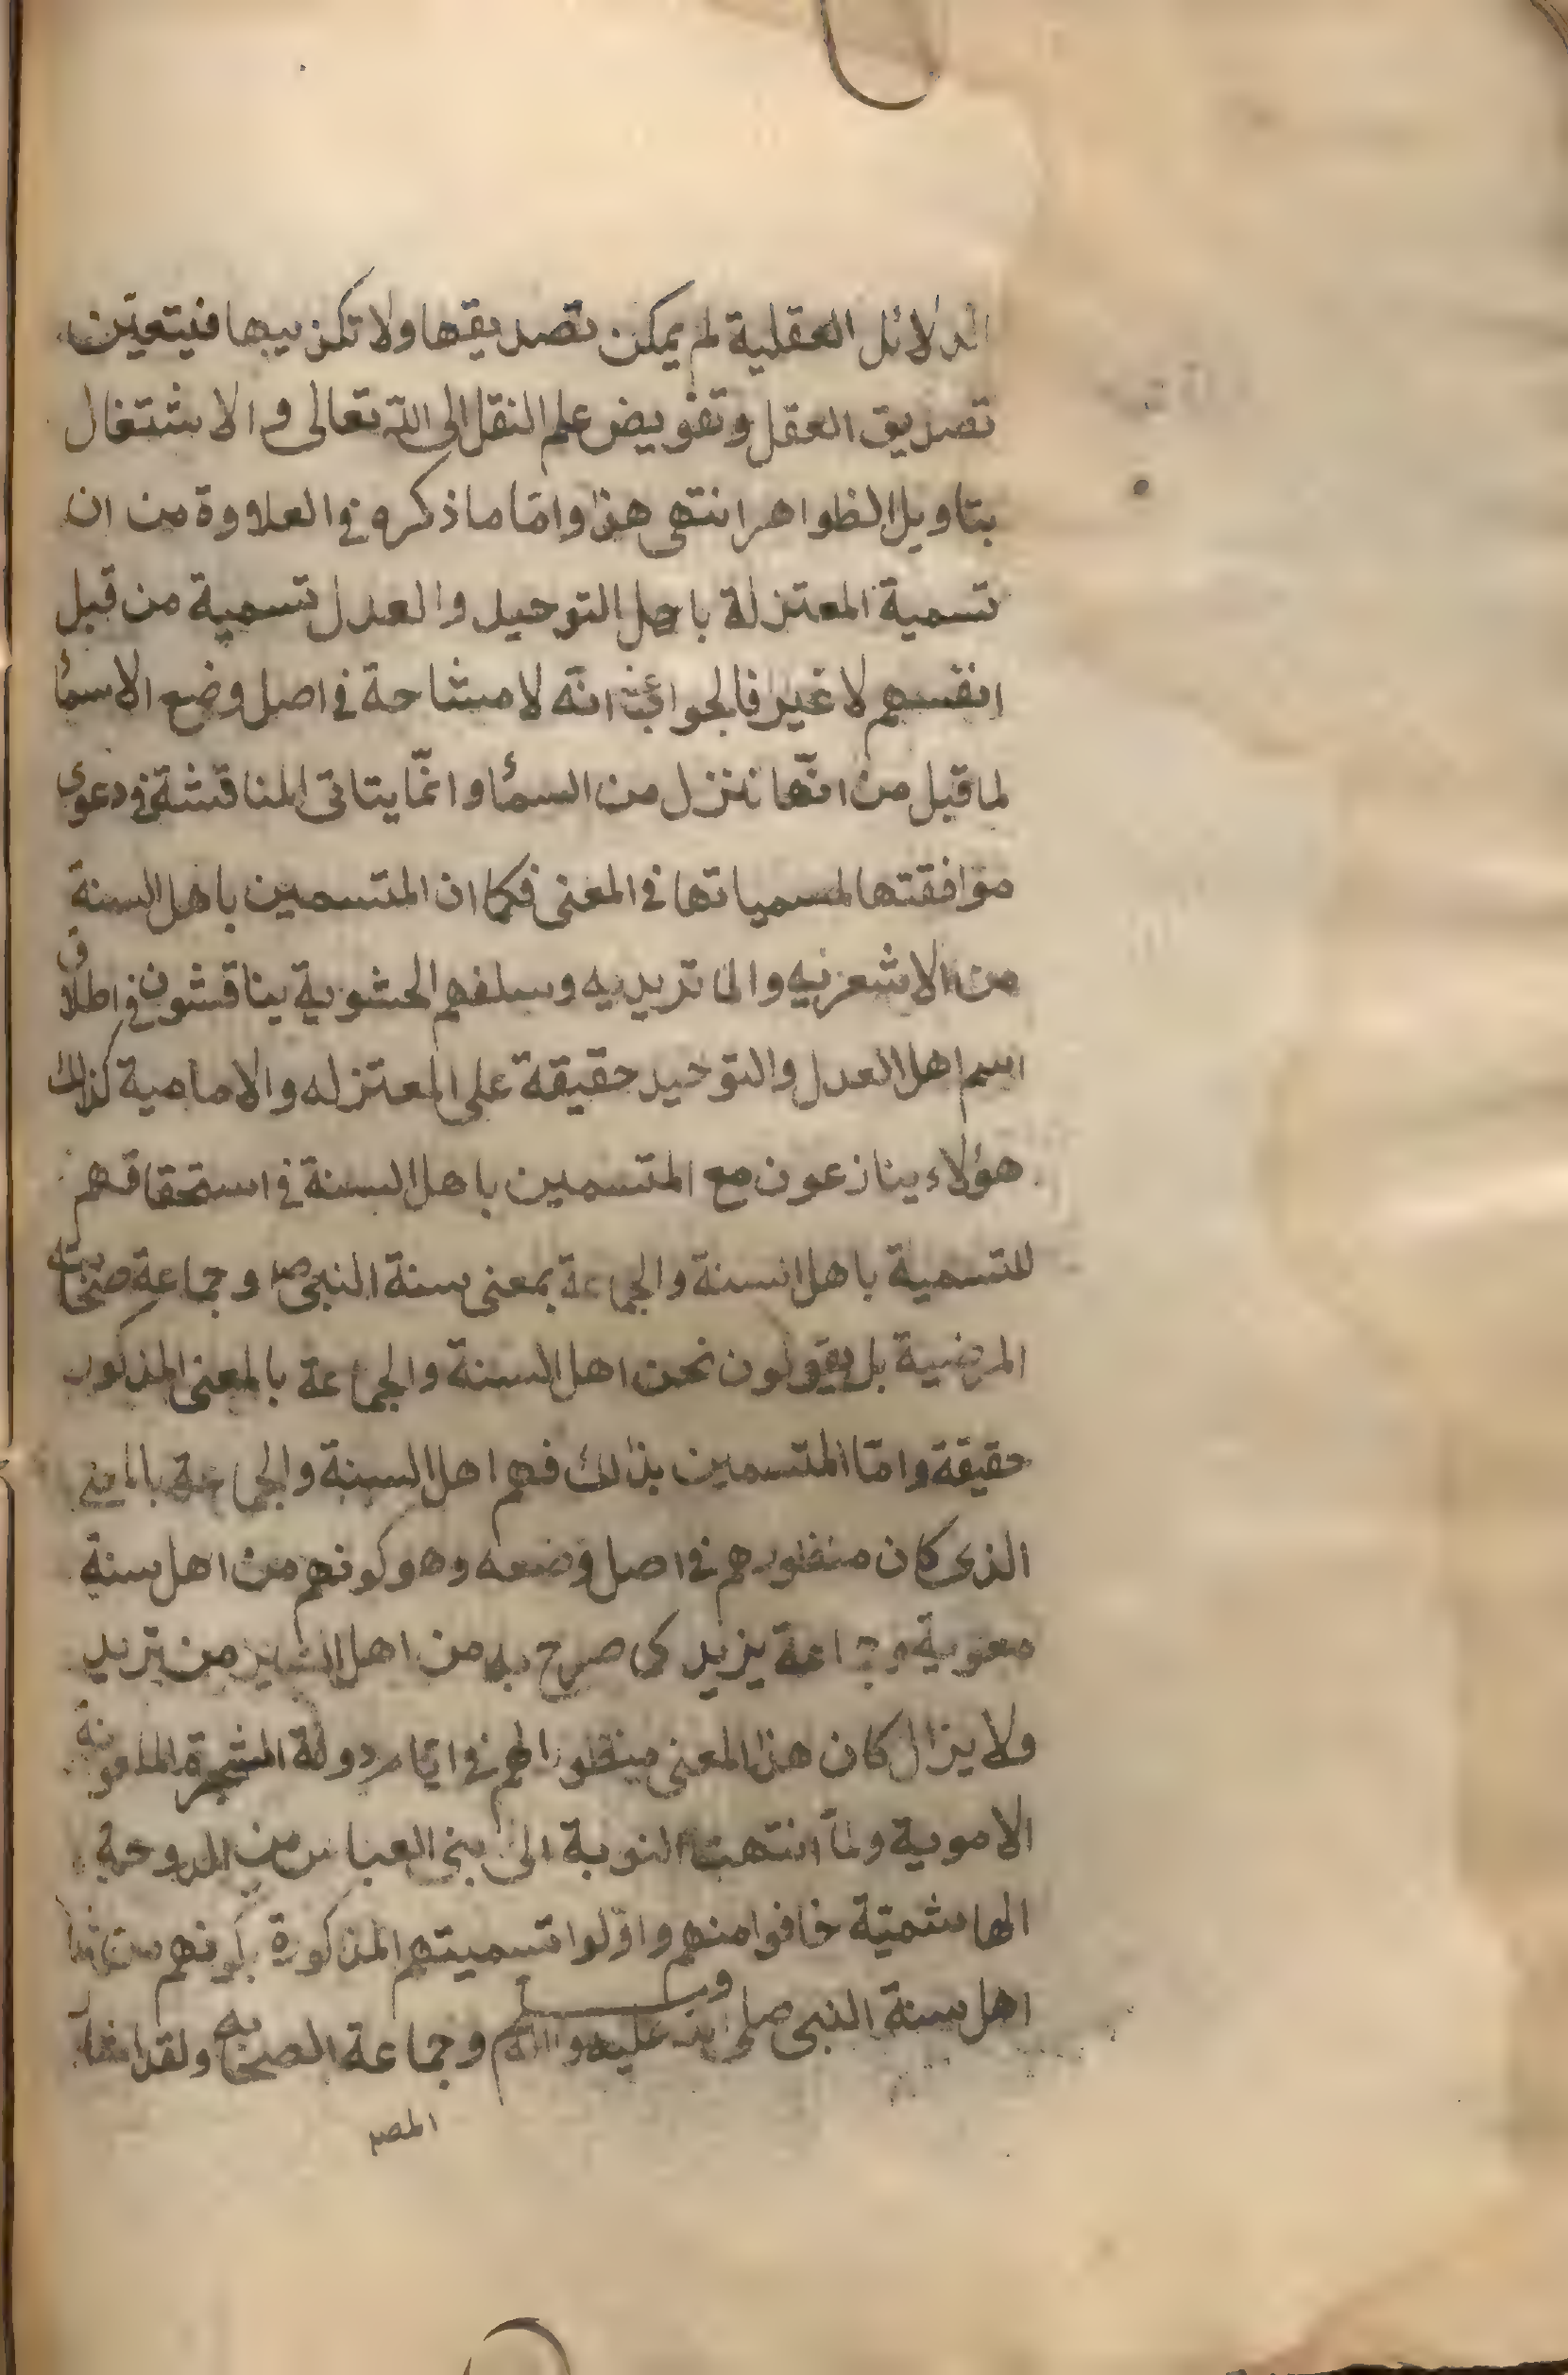 الدلائل العقلية لم يمكن تصديقها ولا تكذيبها فيتعين
تصديق العقل وتفويض علم النقل الى الله تعالى والاشتغال
بتاويل الظواهر انتهى هذا وامّا ما ذكره في العلاوة من ان
تسمية المعتزلة باهل التوحيد والعدل تسمية من قبل
انفسهم لا غير فالجواب عنه انّه لا مشاحة في اصل وضع الاسمأ
لما قيل من انّها تنزل من السمأ وانمّا يتاتى المناقشة في دعوى
موافقتها لمسمياتها في المعنى فكما ان المتسمين باهل السنة
من الاشعريه والماتريديه وسلفهم الحشوية يناقشون في اطلاق
اسم اهل العدل والتوحيد حقيقة على المعتزله والامامية كذلك
هؤلاء ينازعون مع المتسمين باهل السنة في استحقاقهم
للتسمية باهل السنة والجماعة بمعنى سنة النبي ص وجماعة صحابته
المرضية بل يقولون نحن اهل السنة والجماعة بالمعنى المذكور
حقيقة وامّا المتسمين بذلك فهم اهل السنة والجماعة بالمعنى
الذى كان منظورهم في اصل وضعه وهو كونهم من اهل سنة
معوية وجماعة يزيد كما صرح به من اهل من يزيد
ولا يزال كان هذا المعنى منظورا لهم في ايّام دولة الشجرة الملعونة
الاموية ولمّا انتهت النوبة الى بني العباس من الدوحة
الهاشميّة خافوا منهم واوّلوا تسميتهم المذكورة بكونهم من
اهل سنة النبي صلى الله عليه واله وسلم وجماعة الصحابه ولقد
المصم